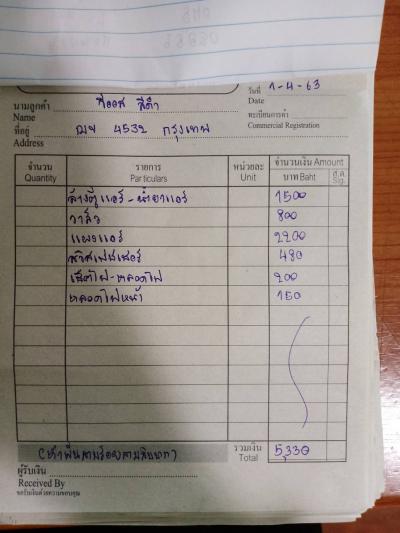 วันที่ 1-4-63
Date
นามลูกค้า วีออส สีดำ
Name
ทะเบียนการค้า
Commercial Registration
ที่อยู่ ฌข 4532 กรุงเทพ
Address
จำนวน รายการ หน่วยละ จำนวนเงิน Amount
Quantity Particulars Unit บาท Baht ส.ต. Stg.
ล้างตู้แอร์ - น้ำยาแอร์ 1500
วาล์ว 800
แผงแอร์ 2200
480
200
หลอดไฟหน้า 150
(ห้าพันสามร้อยสามสิบบาท) รวมเงิน 5,330
Total
ผู้รับเงิน
Received By
ขอรับเงินด้วยความขอบคุณ